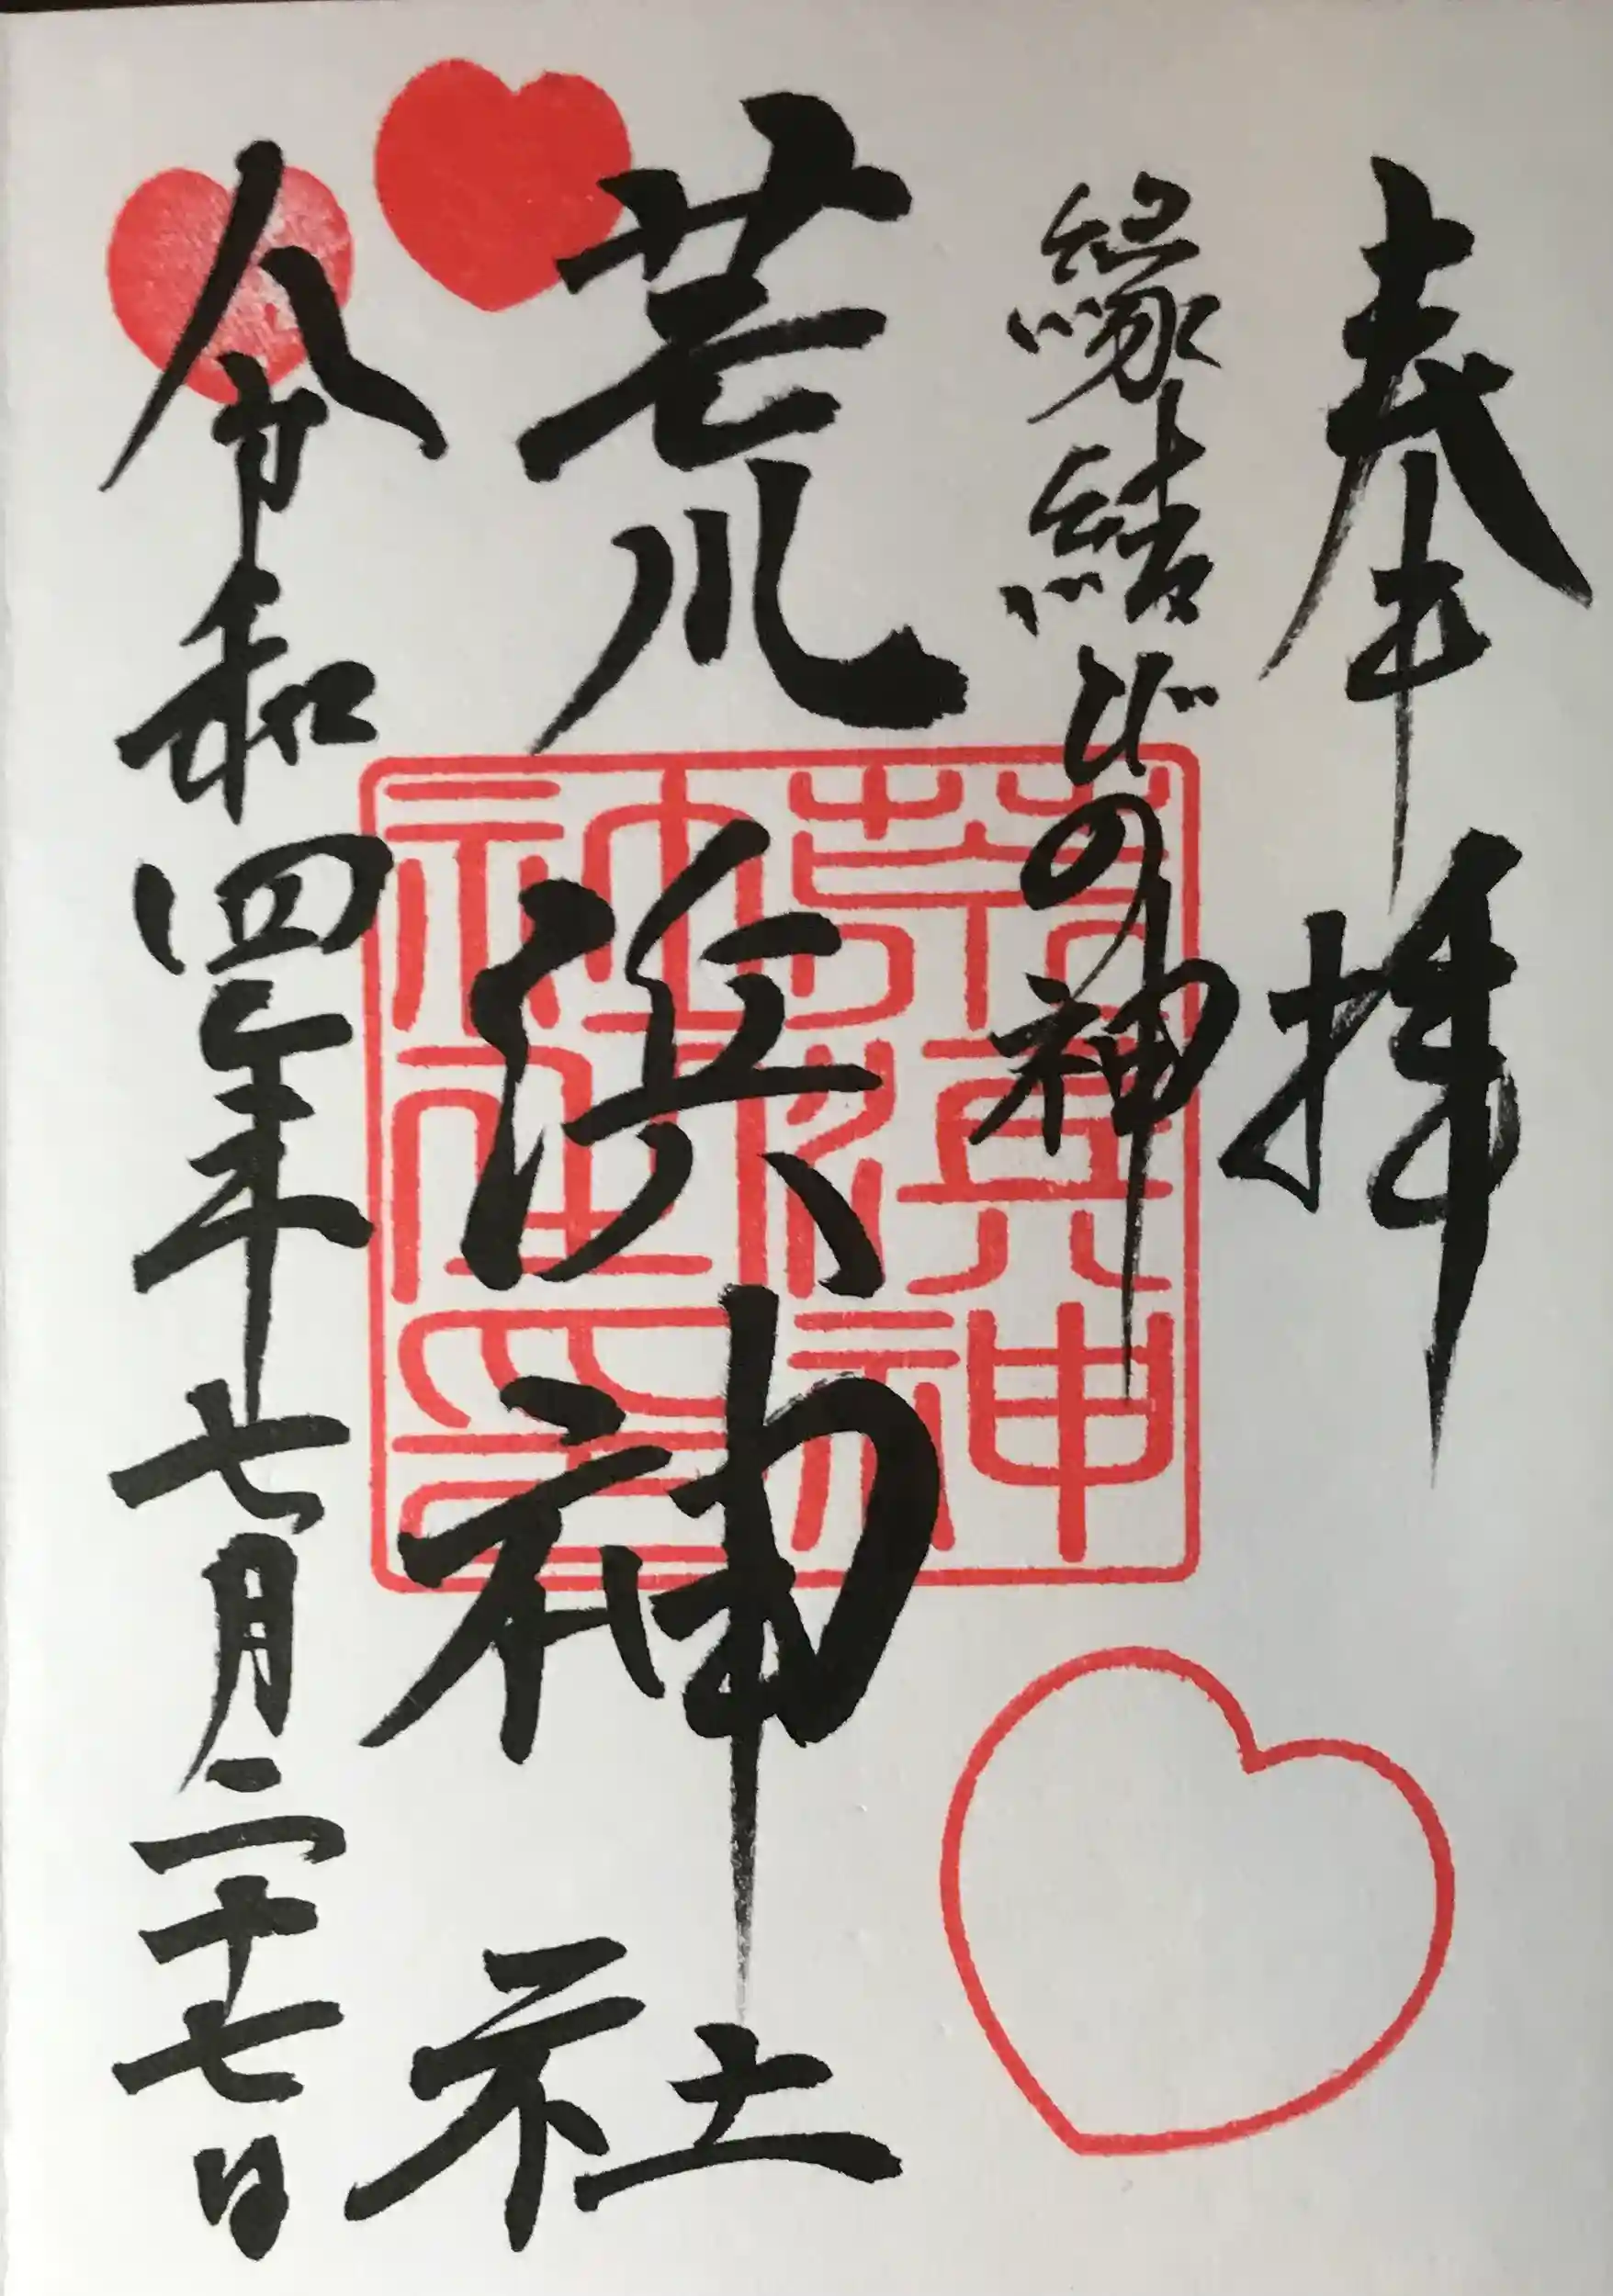 奉拝
縁結びの神
荒浜神社
令和四年七月二十七日